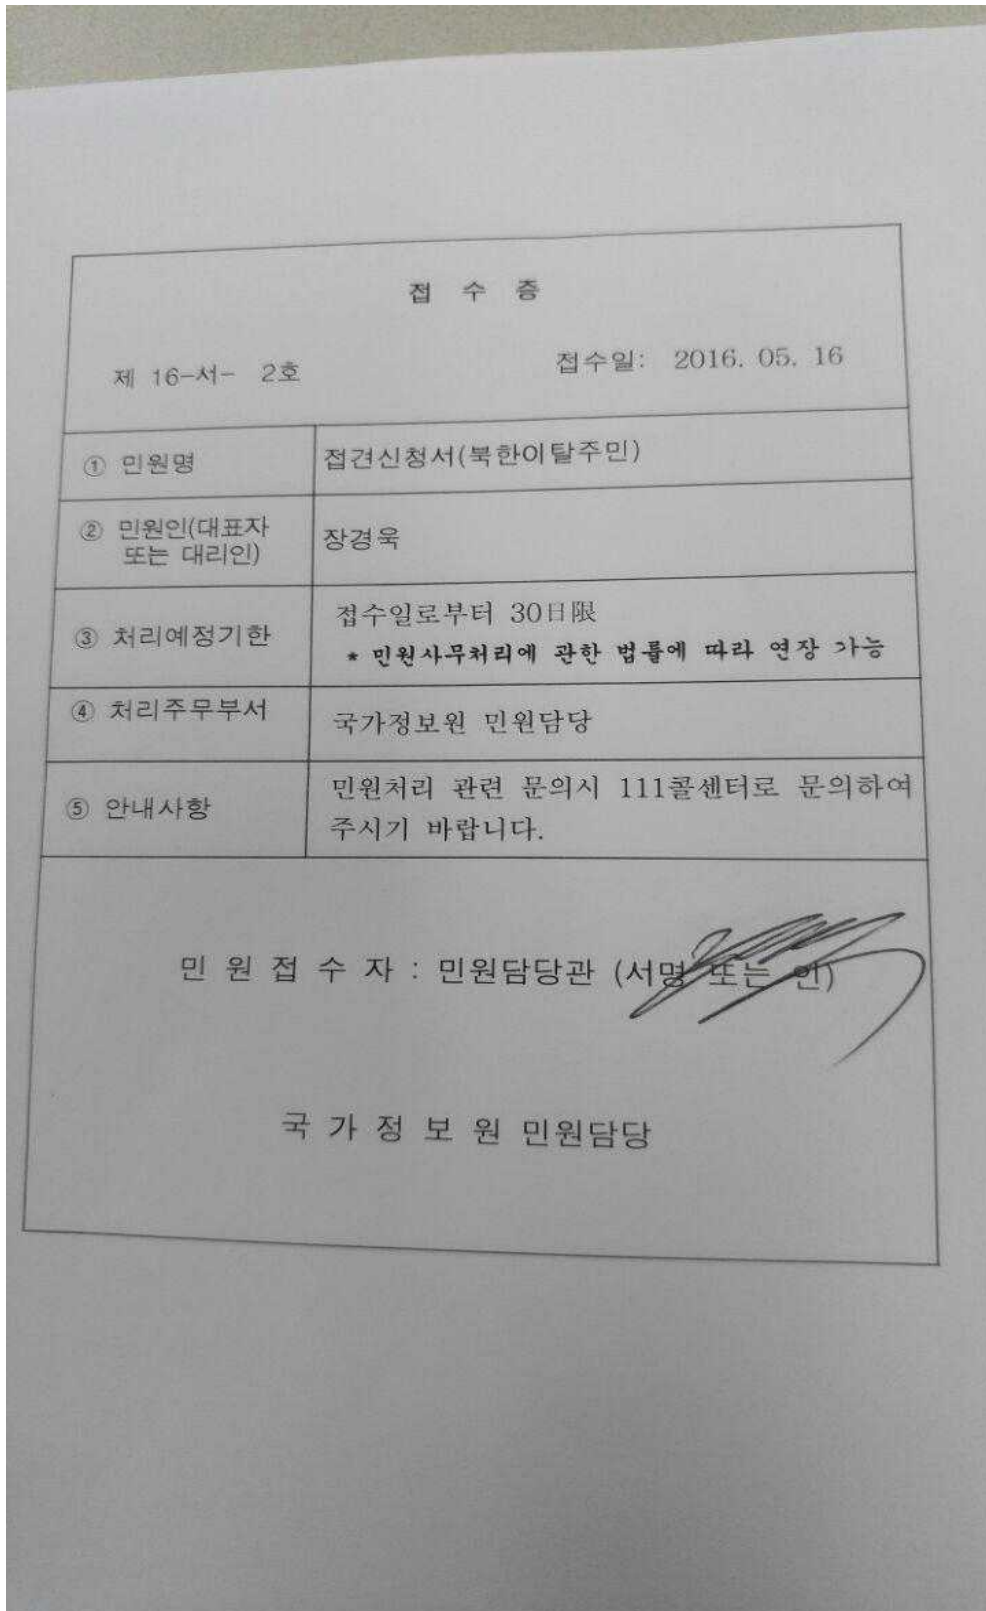 접 수 증
제 16-서- 2호
접수일: 2016. 05. 16
① 민원명
접견신청서(북한이탈주민)
② 민원인(대표자
또는 대리인)
장경욱
③ 처리예정기한
접수일로부터 30日限
* 민원사무처리에 관한 법률에 따라 연장 가능
④ 처리주무부서
국가정보원 민원담당
⑤ 안내사항
민원처리 관련 문의시 111콜센터로 문의하여
주시기 바랍니다.
민 원 접 수 자 : 민원담당관 (서명 또는 인)
국 가 정 보 원 민원담당